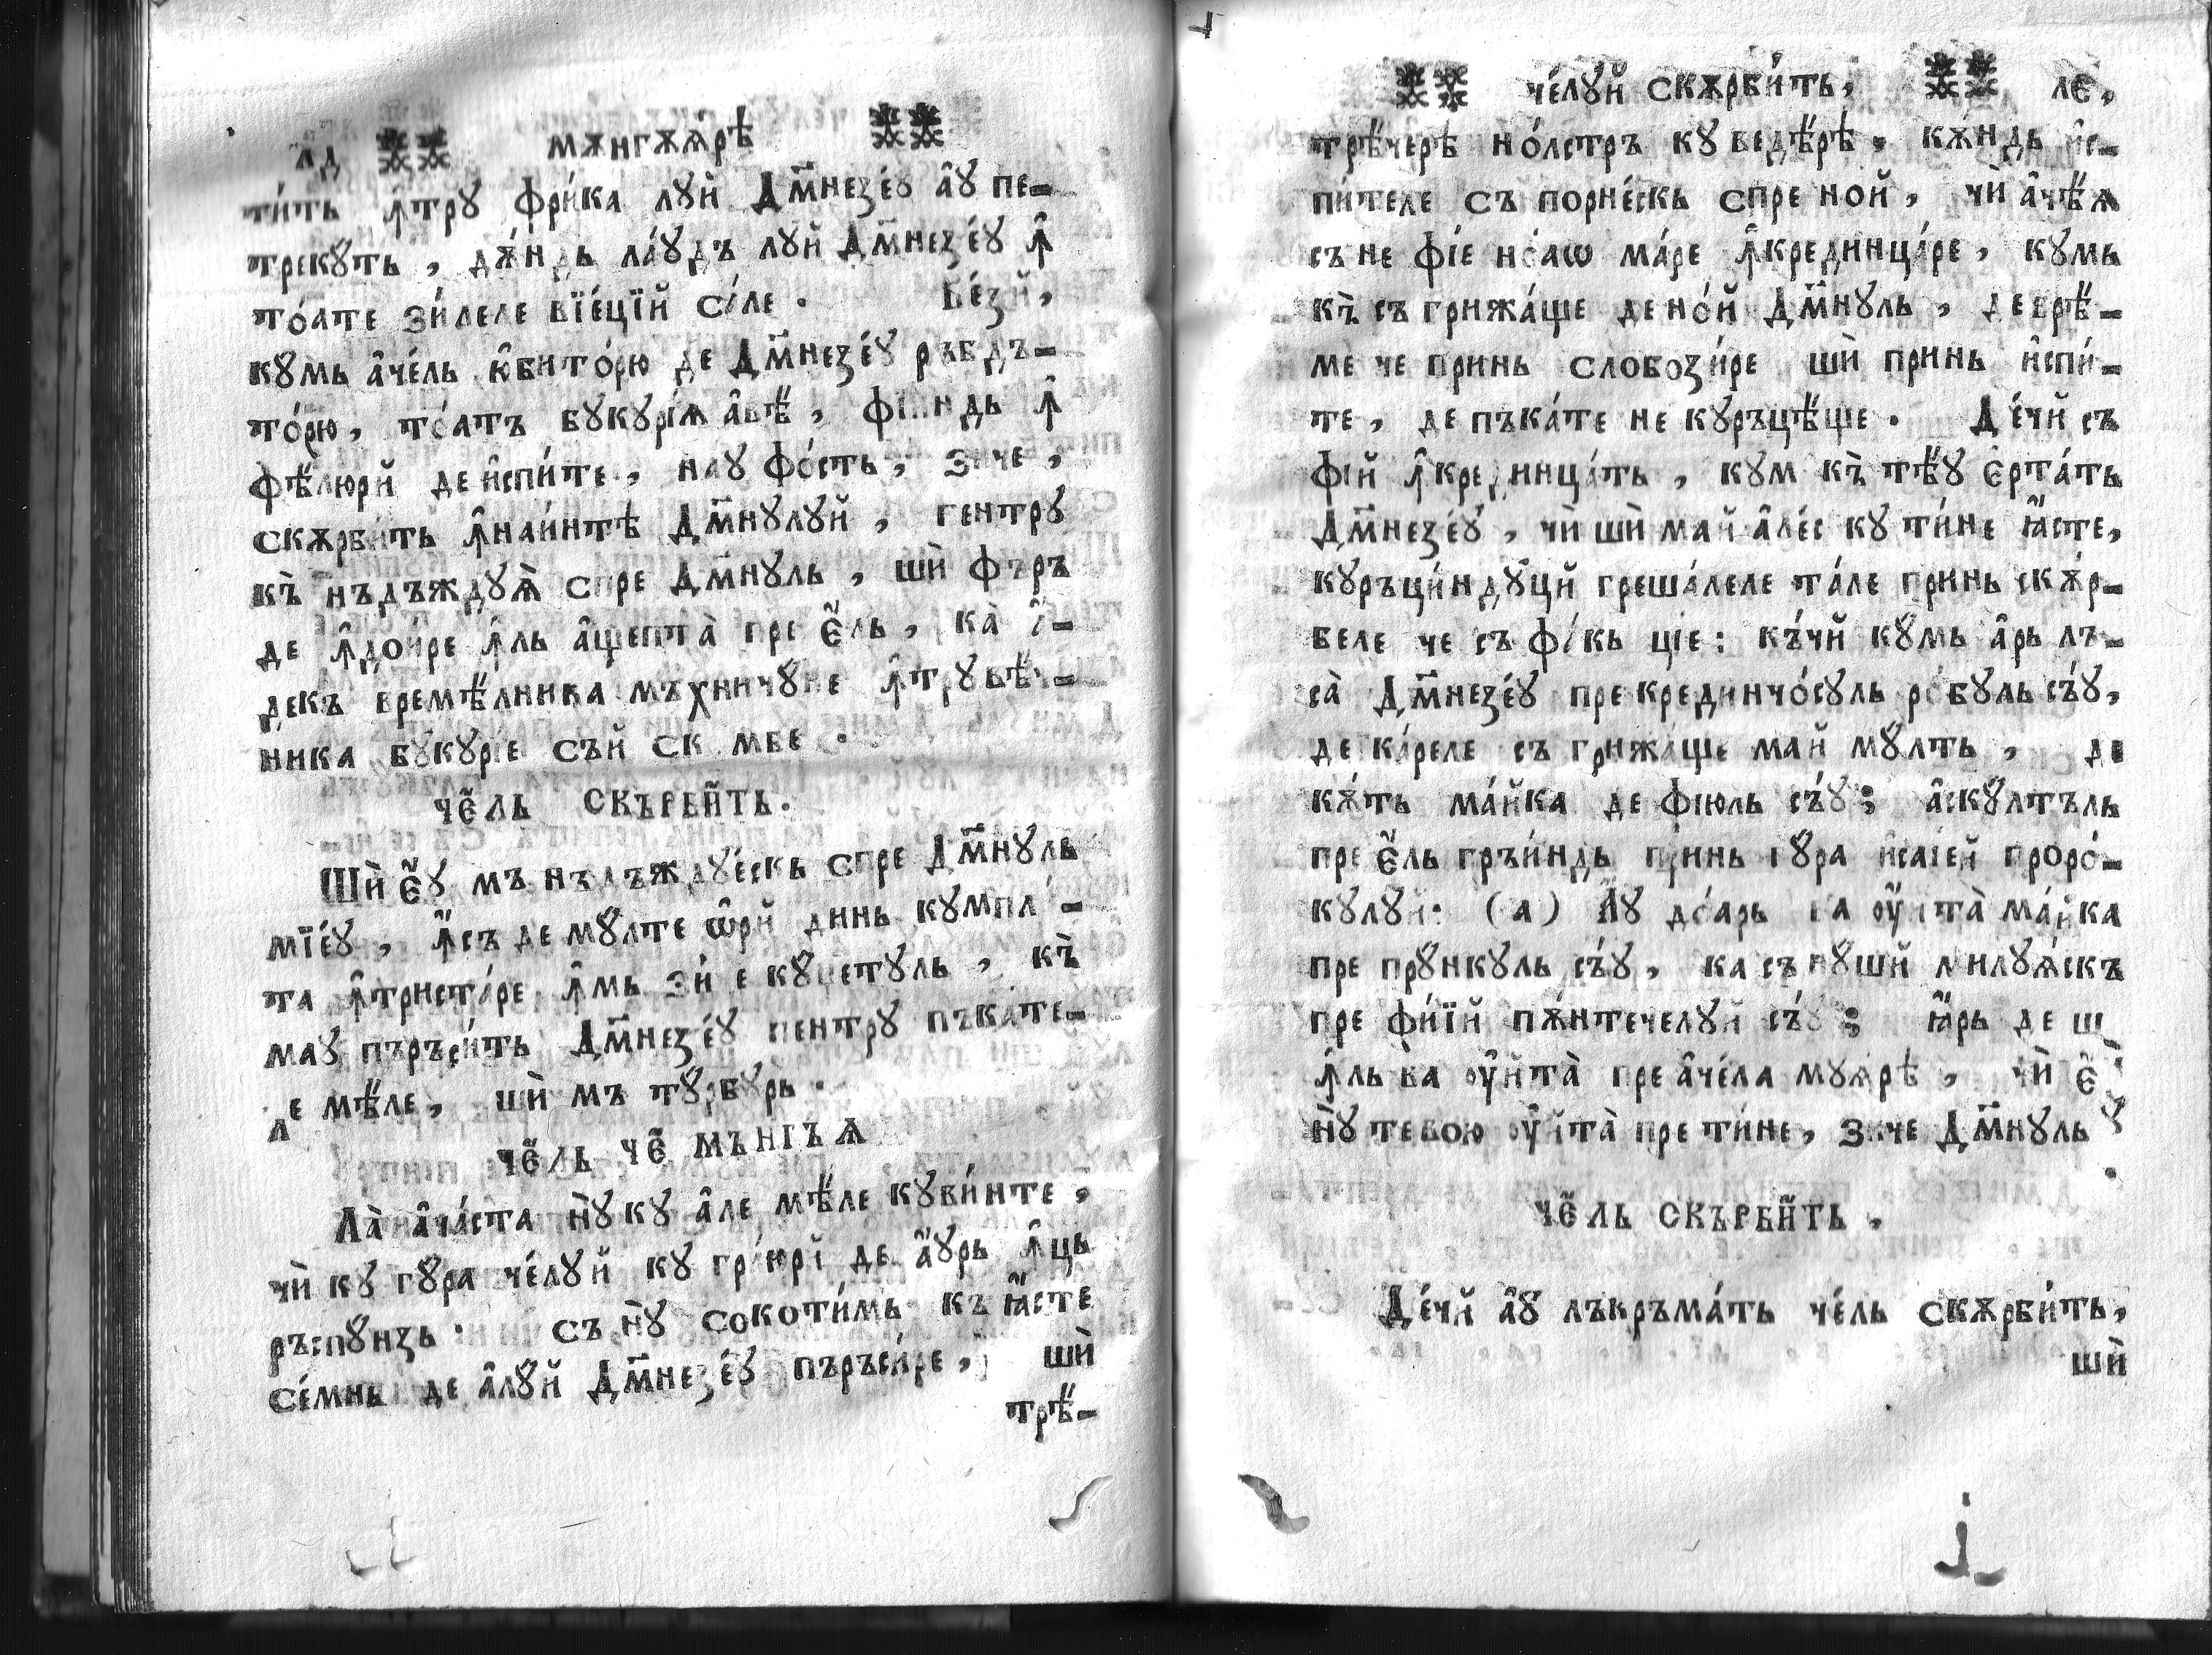 лд мѫнгѫꙗрѣ
ти́ть ꙟ҆трꙋ фри́ка лꙋй Дм҃незе́ꙋ а҆ꙋ пе-
трекꙋть, дѫ́ндь ла́ꙋдъ лꙋй Дм҃незе́ꙋ ꙟ҆
то́ате зи́леле вїе́цїй са́ле. Ве́зй,
кꙋмь а҆че́ль ю҆бито́рю де Дм҃незе́ꙋ ръбдъ-
то́рю, то́атъ бꙋкꙋрі́ѧ а҆вѣ̀, фіиндь ꙟ҆
фѣ̀люрй де и҆спи́те, наꙋ фо́сть, зиче,
скѫрби́ть ꙟ҆наи́нтѣ Дм҃нꙋлꙋй, пентрꙋ
къ̀ нъдъждꙋѧ̀ спре Дм҃нꙋль, шѝ фъръ
де ꙟ҆дои́ре ꙟ҆ль а҆щепта̀ пре є҆́ль, ка̀
декъ времѣ̀лника мъхничꙋне ꙟ҆трꙋ вѣч-
ника бꙋкꙋріе съй скимбе.
че́ль скърби́ть.
Шѝ є҆́ꙋ мъ нъдъждꙋе́скь спре Дм҃нꙋль
мїе́ꙋ, ꙟ҆съ де мꙋлте ѡ҆рй динь кꙋмпли-
та ꙟ҆триста́ре ꙟ҆мь зи́че кꙋцетꙋль, къ̀
маꙋ пъръси́ть Дм҃незе́ꙋ пентрꙋ пъка́те-
ле мѣ̀ле, шѝ мъ тꙋрбꙋрь.
че́ль че́ мънгъѧ
Ла̀ а҆ча́ста нꙋ̀ кꙋ а҆ле мѣ̀ле кꙋви́нте,
чѝ кꙋ гꙋра че́лꙋй кꙋ грі́юрй де а҆́ꙋрь ꙟ҆ць
ръспꙋнзь. съ нꙋ̀ сокоти́мь къ ꙗ҆́сте
се́мнь де а҆лꙋй Дм҃незе́ꙋ пъръси́ре, шѝ
трѣ̀-
че́лꙋй скѫрби́ть, лє,
трѣ̀черѣ но́астръ кꙋ ведѣ̀рѣ. кѫ́ндь и҆с-
пи́теле съ порне́скь спре ной, чѝ а҆чѣ̀ѧ
съ не фі́е но́аѡ ма́ре ꙟ҆крединца́ре, кꙋмь
къ̀ съ грижа́ще де но́й Дм҃нꙋль, де врѣ̀-
ме че принь слобози́ре шѝ принь и҆спи́-
те, де пъка́те не кꙋръцѣ̀ще. Де́чй съ
фій ꙟ҆крединца́ть, кꙋм къ̀ тѣ̀ꙋ є҆рта́ть
Дм҃незе́ꙋ, чѝ шѝ май а҆ле́с кꙋ ти́не ꙗ҆́сте,
кꙋръци́ндꙋцй греша́леле та́ле принь скѫ́р-
беле че съ фа́кь ціе: къ́чй кꙋмь а҆рь лъ-
са̀ Дм҃незе́ꙋ пре крединчо́сꙋль ро́бꙋль съ́ꙋ,
де ка́реле съ грижа́ще май мꙋлть, де
кѫ́ть ма́йка де фіюль съ́ꙋ; а҆скꙋлтъль
пре є҆́ль гръи́ндь принь гꙋра и҆са́іей проро́-
кꙋлꙋй: (а) А҆ꙋ до́арь ва ᲂу҆йта̀ ма́йка
пре прꙋнкꙋль съ́ꙋ, ка съ нꙋшй милꙋѧ́скъ
пре фі́їй пѫ́нтечелꙋй съ́ꙋ; ꙗ҆́рь де ш
ꙟ҆ль ва ᲂу҆йта̀ пре а҆че́ла мꙋѧрѣ, чѝ є҆
нꙋ̀ те вою ᲂу҆йта̀ пре ти́не, зиче Дм҃нꙋль
че́ль скърби́ть.
Де́чй а҆ꙋ лъкръма́ть че́ль скѫрби́ть,
шѝ